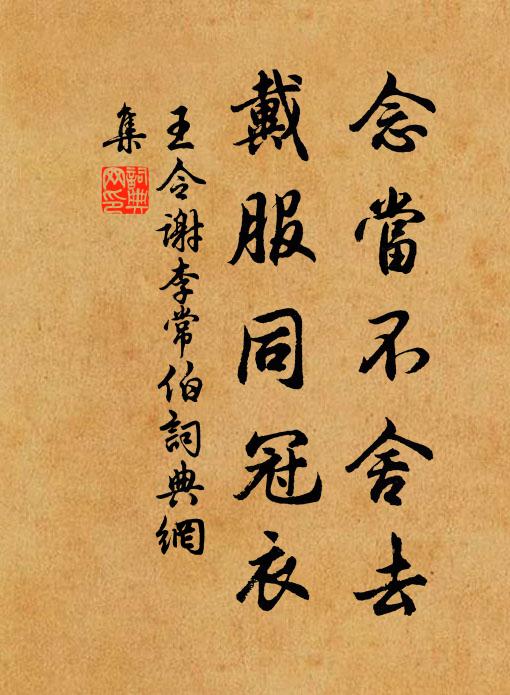 念當不舍去
戴服同冠衣
王令謝李常伯詞典網
集
詞典
网印